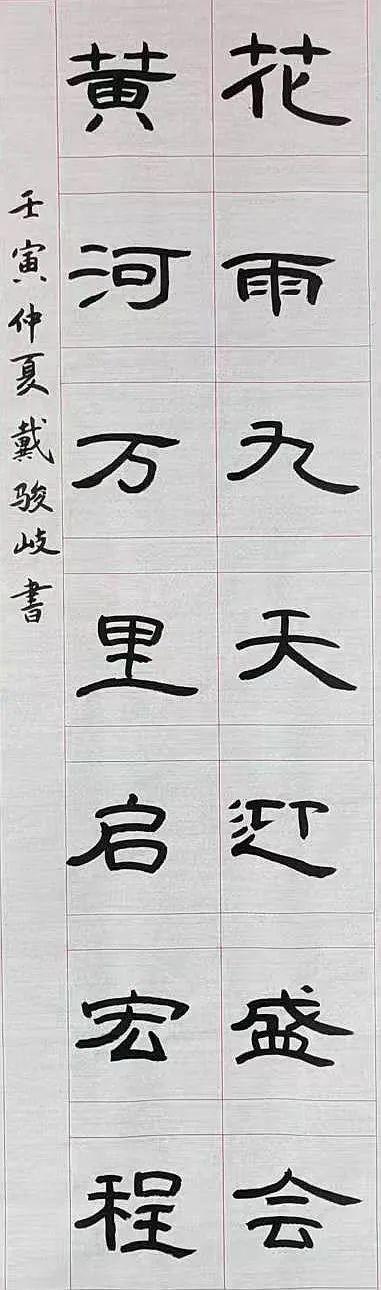 花雨九天迎盛会
黄河万里启宏程
壬寅仲夏戴骏岐书